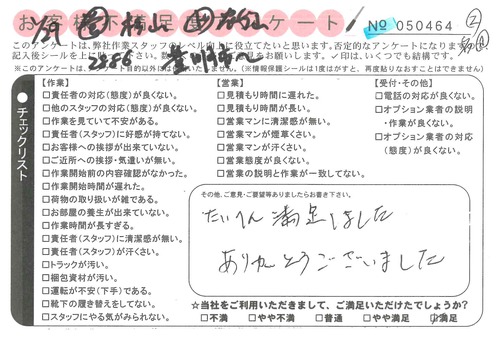 お客様不満足度アンケート
№ 050464
このアンケートは、弊社作業スタッフのレベル向上に役立てたいと思います。否定的なアンケートになります
記入後シールを上
をお願いします。✓印は、いくつでも結構です。
(※情報保護シールは1度がすと、再度貼りなおすことはできません)
チェックリスト
【作業】
□責任者の対応(態度)が良くない。
□他のスタッフの対応(態度)が良くない。
□作業を見ていて不安がある。
□責任者(スタッフ)に好感が持てない。
□お客様への挨拶が出来ていない。
□ご近所への挨拶・気遣いが無い。
□作業開始前の内容確認がなかった。
□作業開始時間が遅れた。
□荷物の取り扱いが雑である。
□お部屋の養生が出来ていない。
□作業時間が長すぎる。
□責任者(スタッフ)に清潔感が無い。
□責任者(スタッフ)が汗くさい。
□トラックが汚い。
□梱包資材が汚い。
□運転が不安(下手)である。
□靴下の履き替えをしてない。
□スタッフにやる気がみられない。
【営業】
□見積もり時間に遅れた。
□見積もり時間が長い。
□営業マンに清潔感が無い。
□営業マンが煙草くさい。
□営業マンが汗くさい。
□営業態度が良くない。
□営業の説明と作業が一致してない。
【受付・その他】
□電話の対応が良くない。
□オプション業者の説明
・作業が良くない。
□オプション業者の対応
(態度)が良くない。
その他、ご意見・ご要望等ありましたらお書き下さい。
たいへん満足しました
ありがとうございました
☆当社をご利用いただきまして、ご満足いただけたでしょうか?
□不満 □やや不満 □普通 □やや満足 ☑満足